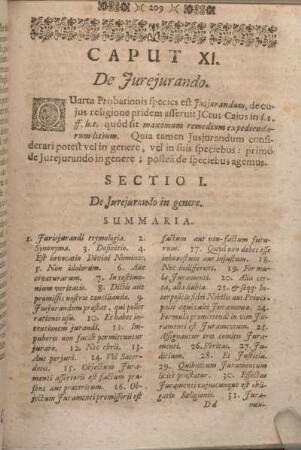 209
CAPUT XI.
De Jurejurando.
QUarta Probationis species est Jusjurandum, de cu-
jus religione pridem asseruit JCtus Caius in l. 1.
ff. h. t. quòd sit maximum remedium expediendo-
rum litium. Quia tamen Jusjurandum consi-
derari potest vel in genere, vel in suis speciebus: primò
de Jurejurando in genere; posteà de speciebus agemus.
SECTIO I.
De Jurejurando in genere.
SUMMARIA.
1. Jurisjurandi etymologia. 2.
Synonyma. 3. Definitio. 4.
Est invocatio Divini Nominis,
5. Non idolorum. 6. Aut
creaturarum. 7. In testimo-
nium veritatis. 8. Dictis aut
promissis nostris concilianda. 9.
Jusjurandum præstat, qui pollet
ratione 10. Et habet in-
tentionem jurandi. 11. Im-
pubéres non facilè permittuntur
jurare. 12. Nec ebrii. 13.
Aut perjuri. 14. Vel Sacer-
dotes. 15. Objectum Jura-
menti assertorii est factum præ-
sens aut præteritum. 16. Ob-
jectum Juramenti promissorii est
factum aut non-factum futu-
rum. 17. Quod non debet esse
inhonestum aut injustum. 18.
Nec indifferens. 19. For-
mula Juramenti. 20. Alia cer-
ta. 21. Alia dubia, & seqq. In-
terpositio fidei Nobilis aut Princi-
palis æquivalet Juramento. 24.
Formula promittendi in vim Jura-
menti est Juramentum. 25.
Assignantur tres comites Jura-
menti. 26. Veritas. 27. Ju-
dicium. 28. Et Justitia.
29. Quibusnam Juramentum
licitè præstatur. 30. Effectus
Juramenti cujuscunque est obli-
gatio Religionis. 31. Jura-
Dd men-